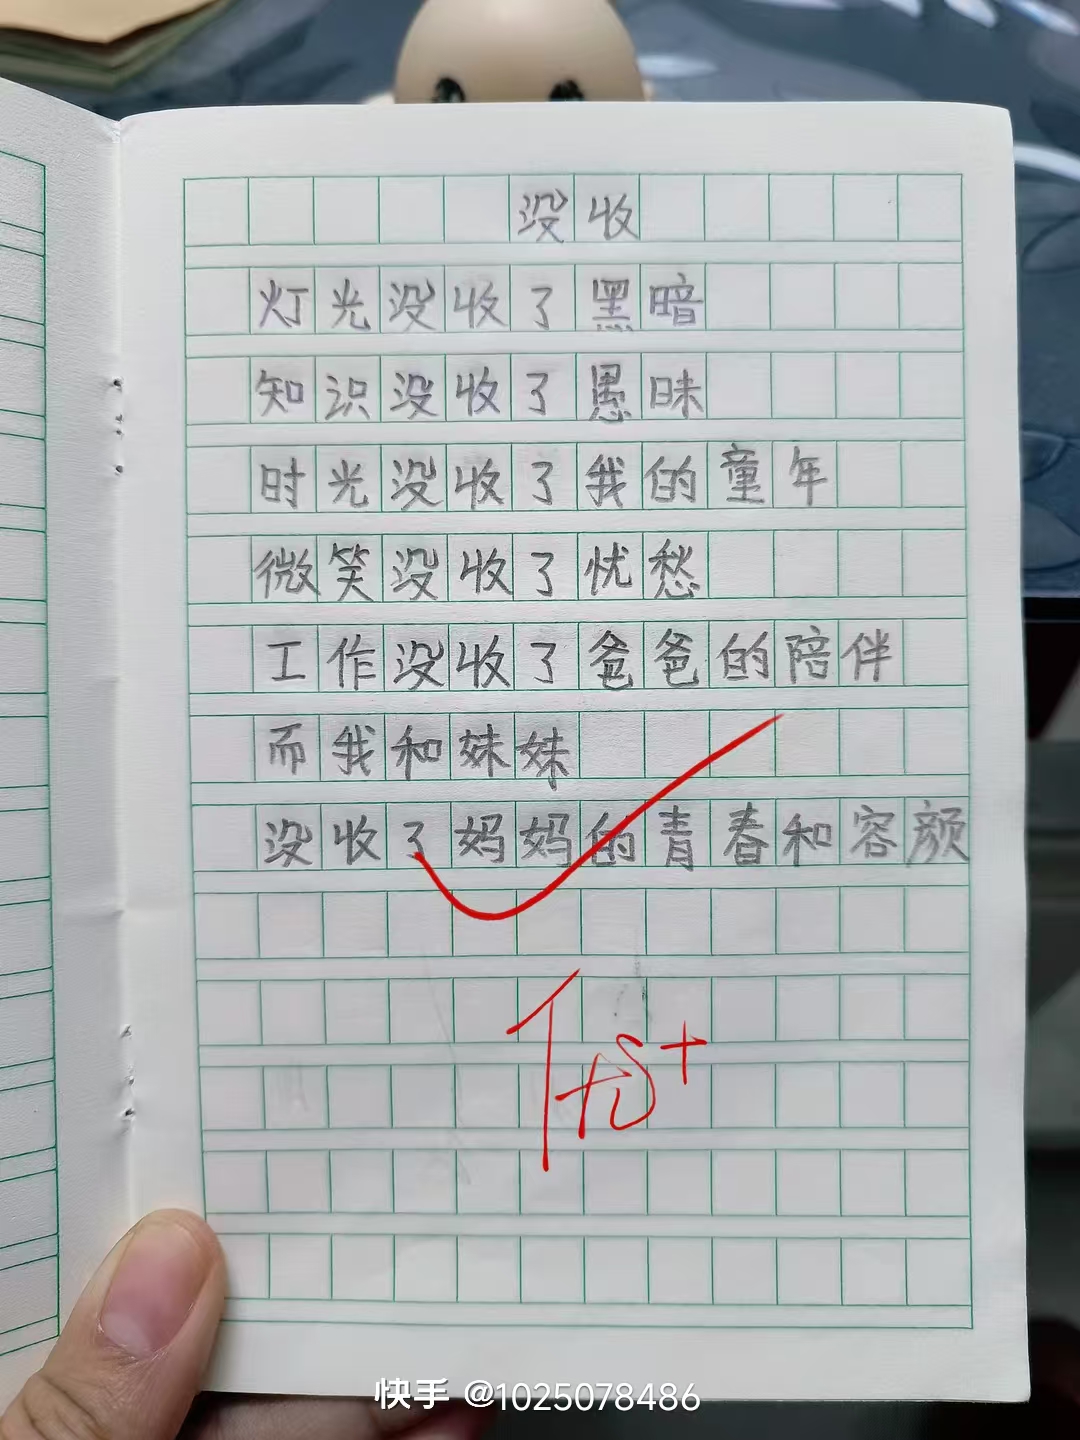 没收
灯光没收了黑暗
知识没收了愚昧
时光没收了我的童年
微笑没收了忧愁
工作没收了爸爸的陪伴
而我和妹妹
没收了妈妈的青春和容颜
优+
快手 @1025078486